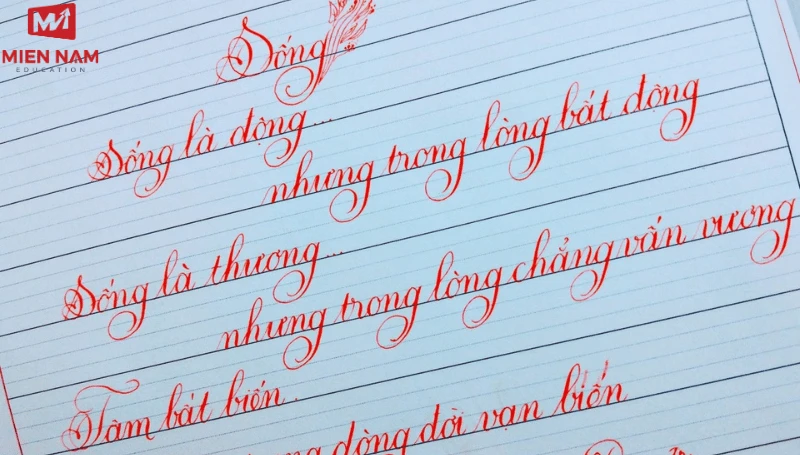 MIEN NAM
EDUCATION
Sống
Sống là động...
nhưng trong lòng bất động
Sống là thương...
nhưng trong lòng chẳng vấn vương
Tâm bất biến..
dòng đời vạn biến